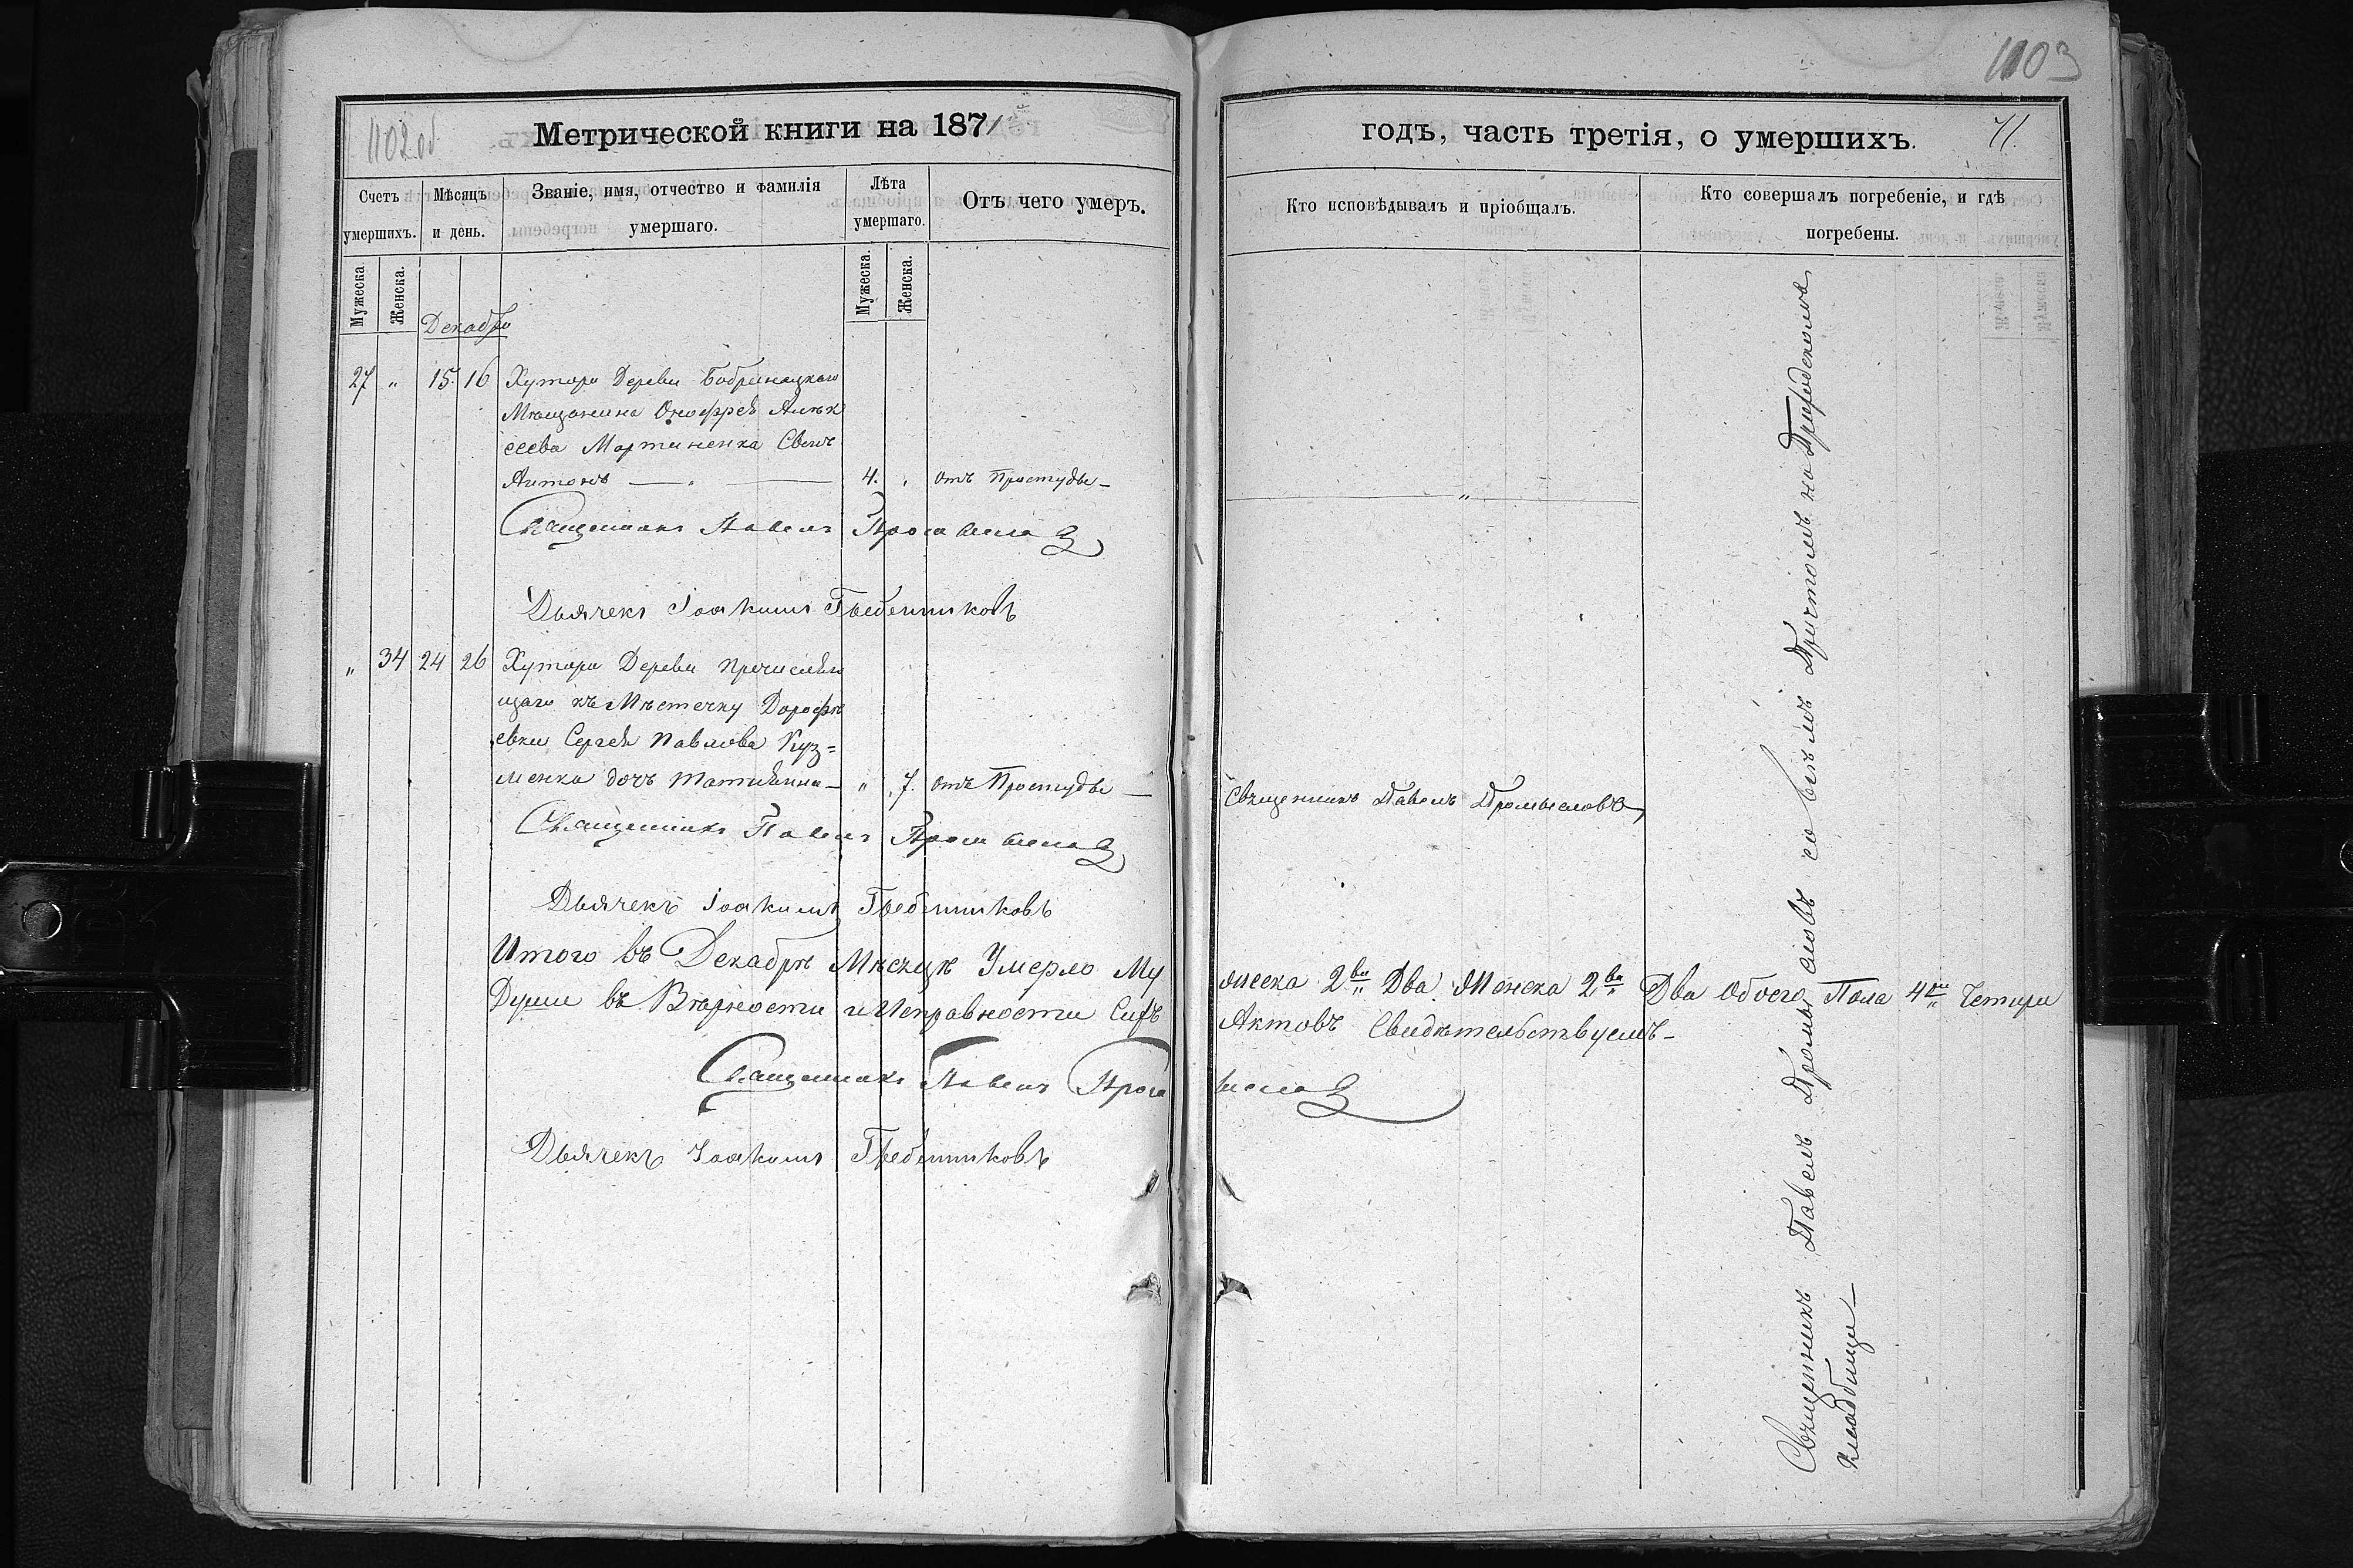 1103
1102 об
Метрической книги на 1871
годъ, часть третія, о умершихъ.
71.
Счетъ умершихъ.
Мѣсяцъ и день.
Званіе, имя, отчество и фамилія умершаго.
Лѣта умершаго.
Отъ чего умеръ.
Кто исповѣдывалъ и пріобщалъ.
Кто совершалъ погребеніе, и гдѣ погребены.
Мужеска.
Женска.
Мужеска.
Женска.
Декабря
27 " 15. 16 Хутора Дереви Бобринецкаго
Мѣщанина Онофрея Алек
сеева Мартиненка Сынъ
Антонъ — " — 4. " отъ Простуды —
Священникъ Павелъ Промысловъ
Дьячекъ Іоакимъ Гребенниковъ
" 34 24 26 Хутора Дереви Пречисляю
щаго къ Мѣстечку Дорофѣ
евки Сергея Павлова Куз=
менка дочъ Татиянна — " 7. отъ Простуды —
Священникъ Павелъ Промысловъ
Священникъ Павелъ Промысловъ
Дьячекъ Іоакимъ Гребенниковъ
Итого въ Декабрѣ Мѣсяцѣ Умерло Му жеска 2ва Два Женска 2ва Два Обоего Пола 4ри Четири
Души въ Вѣрности и Исправности Сихъ Актовъ Свидѣтельствуемъ —
Священникъ Павелъ Промысловъ
Дьячекъ Іоакимъ Гребенниковъ
Священникъ Павелъ Промысловъ со всѣмъ Причтомъ на Приходскомъ
кладбищи —